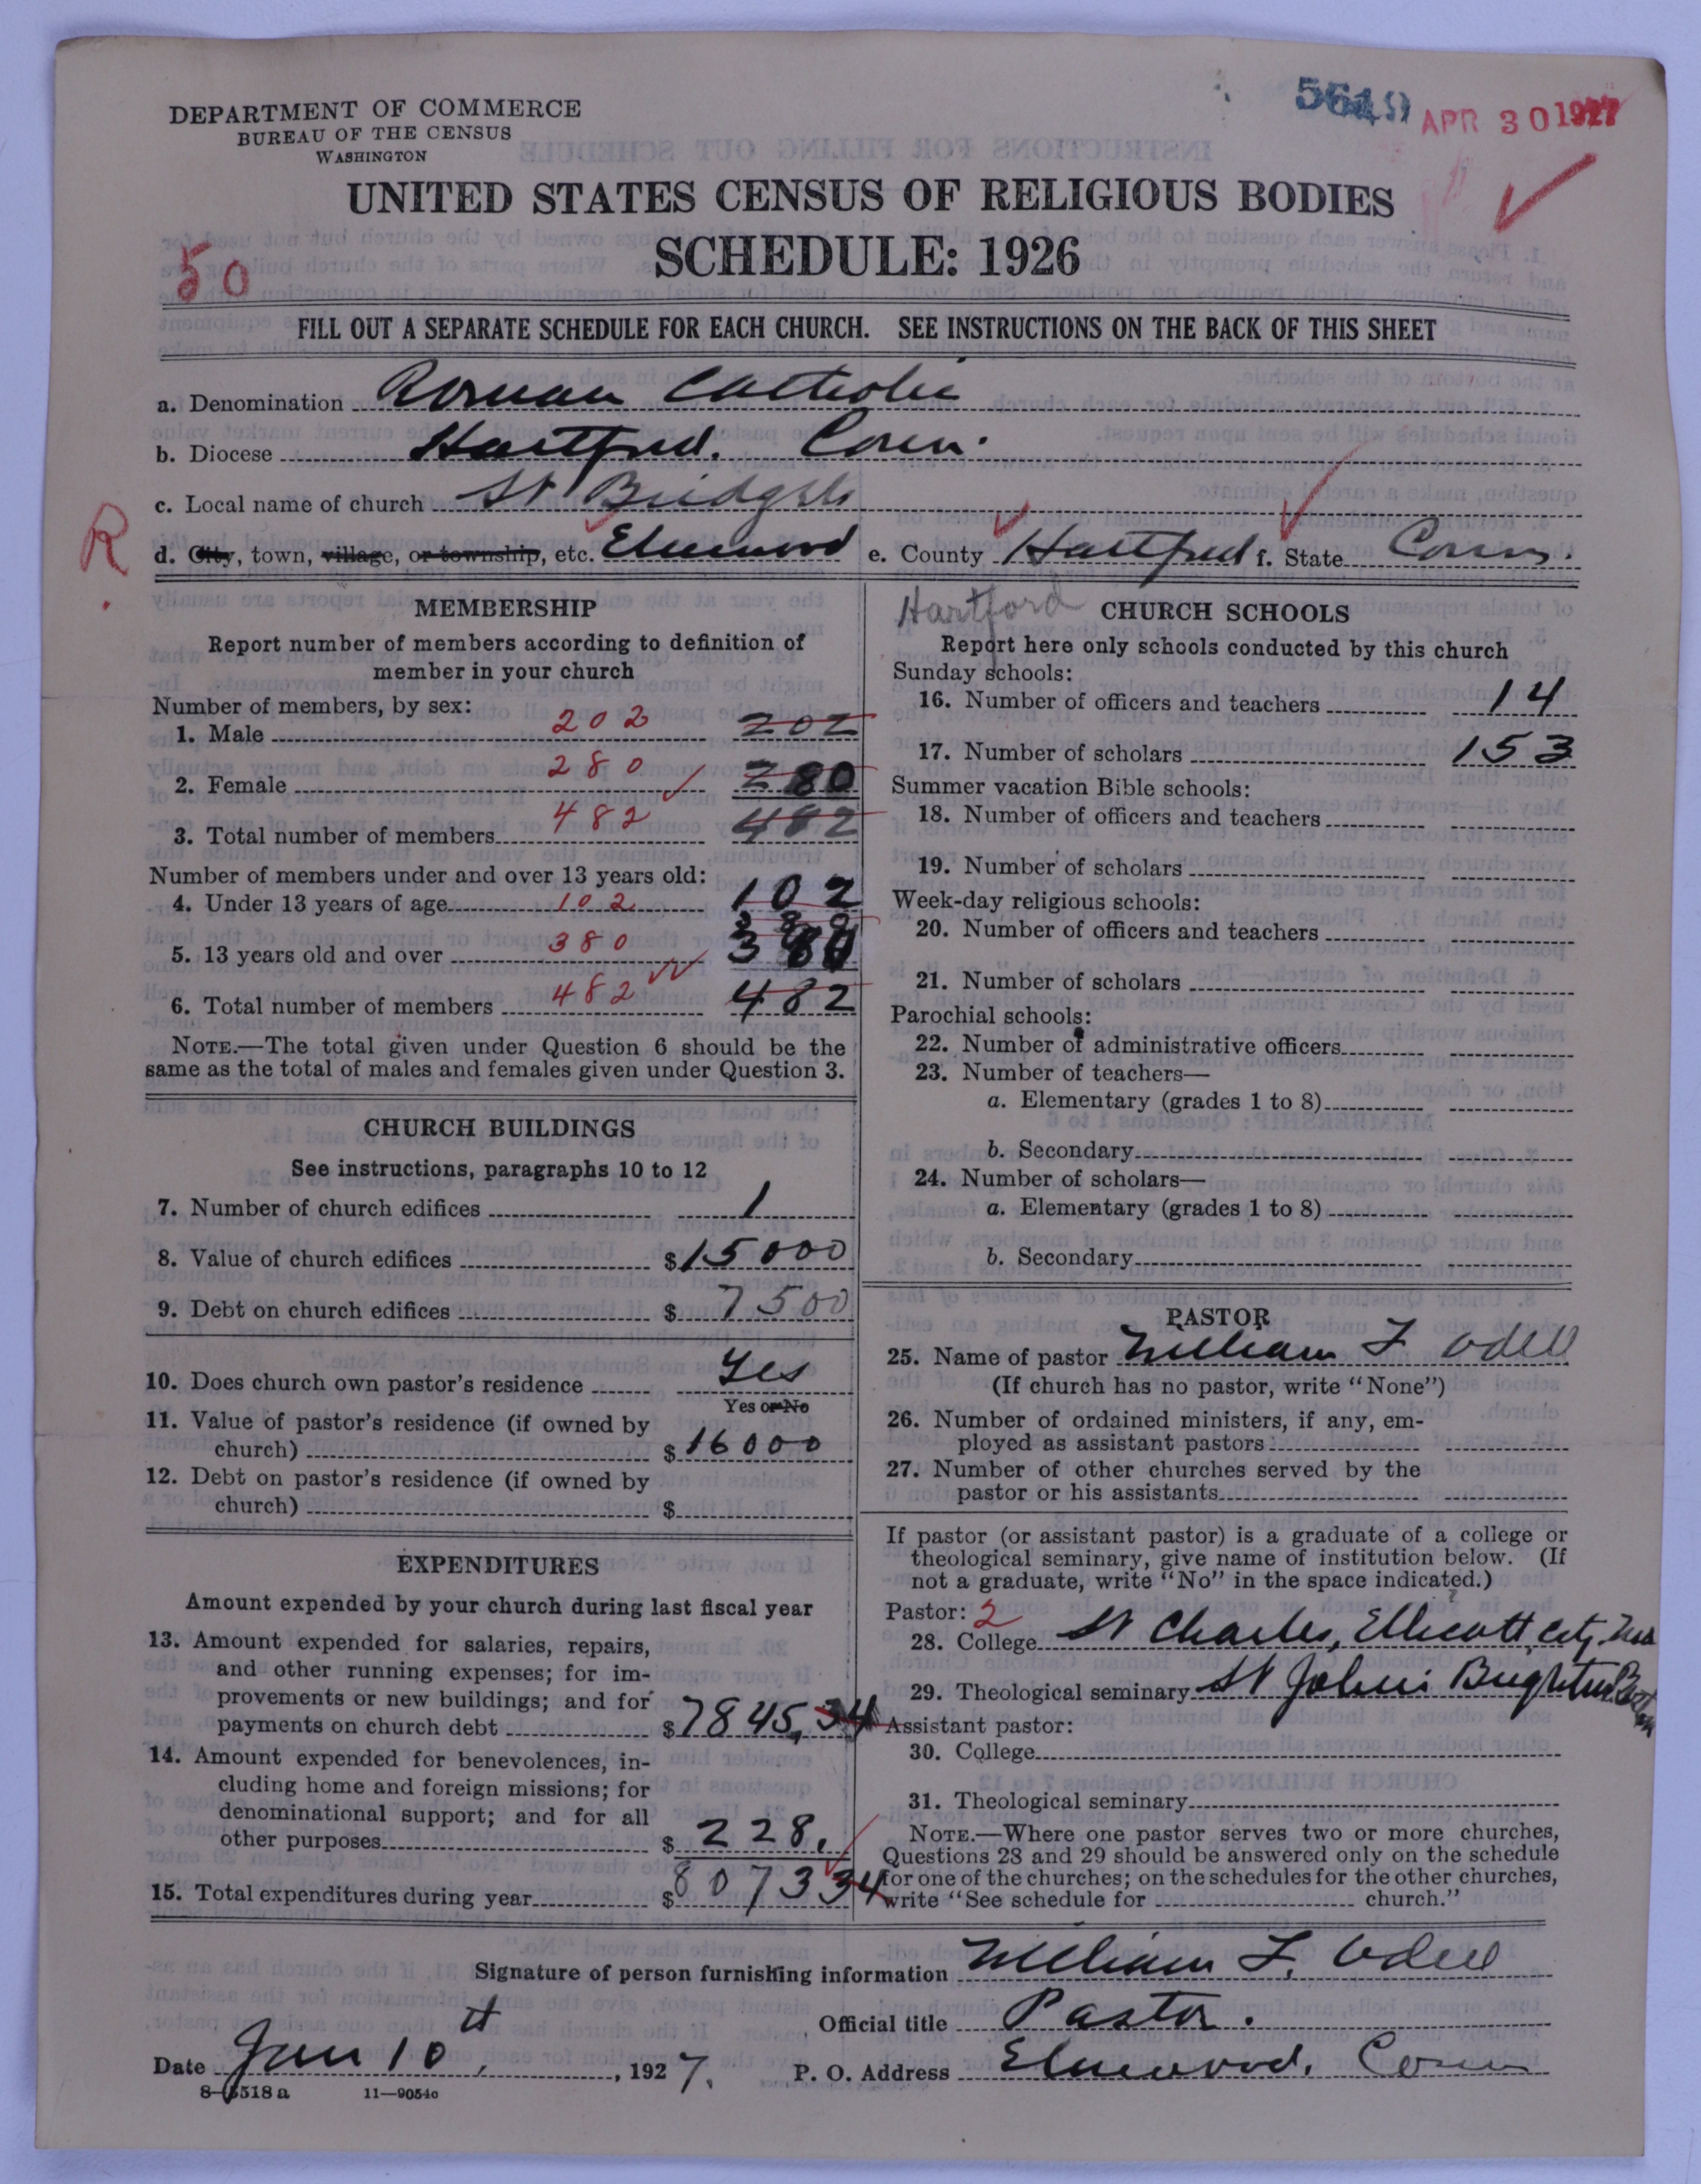 DEPARTMENT OF COMMERCE
BUREAU OF THE CENSUS
WASHINGTON
APR 30 1927
UNITED STATES CENSUS OF RELIGIOUS BODIES
SCHEDULE: 1926
50
FILL OUT A SEPARATE SCHEDULE FOR EACH CHURCH. SEE INSTRUCTIONS ON THE BACK OF THIS SHEET
a. Denomination Roman Catholic
b. Diocese Hartford. Conn.
c. Local name of church St Bridgets
R
d. City, town, village, or township, etc. Elmwood e. County Hartford f. State Conn.
MEMBERSHIP
Report number of members according to definition of
member in your church
Number of members, by sex:
1. Male 202 202
2. Female 280 280
3. Total number of members 482 482
Number of members under and over 13 years old:
4. Under 13 years of age 102 102
380
5. 13 years old and over 380 380
6. Total number of members 482 482
NOTE.—The total given under Question 6 should be the
same as the total of males and females given under Question 3.
CHURCH BUILDINGS
See instructions, paragraphs 10 to 12
7. Number of church edifices 1
8. Value of church edifices $15000
9. Debt on church edifices $7500
10. Does church own pastor's residence Yes
Yes or No
11. Value of pastor's residence (if owned by
church) $16000
12. Debt on pastor's residence (if owned by
church) $
EXPENDITURES
Amount expended by your church during last fiscal year
13. Amount expended for salaries, repairs,
and other running expenses; for im-
provements or new buildings; and for
payments on church debt $7845,34
14. Amount expended for benevolences, in-
cluding home and foreign missions; for
denominational support; and for all
other purposes $228.
15. Total expenditures during year $8073 34
Hartford
CHURCH SCHOOLS
Report here only schools conducted by this church
Sunday schools:
16. Number of officers and teachers 14
17. Number of scholars 153
Summer vacation Bible schools:
18. Number of officers and teachers
19. Number of scholars
Week-day religious schools:
20. Number of officers and teachers
21. Number of scholars
Parochial schools:
22. Number of administrative officers
23. Number of teachers—
a. Elementary (grades 1 to 8)
b. Secondary
24. Number of scholars—
a. Elementary (grades 1 to 8)
b. Secondary
PASTOR
25. Name of pastor William F Odell
(If church has no pastor, write "None")
26. Number of ordained ministers, if any, em-
ployed as assistant pastors
27. Number of other churches served by the
pastor or his assistants
If pastor (or assistant pastor) is a graduate of a college or
theological seminary, give name of institution below. (If
not a graduate, write "No" in the space indicated.)
Pastor: 2
28. College St Charles, Ellicott City, Md
29. Theological seminary St John's Brighton
Assistant pastor:
30. College
31. Theological seminary
NOTE.—Where one pastor serves two or more churches,
Questions 28 and 29 should be answered only on the schedule
for one of the churches; on the schedules for the other churches,
write "See schedule for church."
Signature of person furnishing information William F. Odell
Official title Pastor.
Date Jan 10th, 1927. P. O. Address Elmwood, Conn
8—5518a 11—9054c